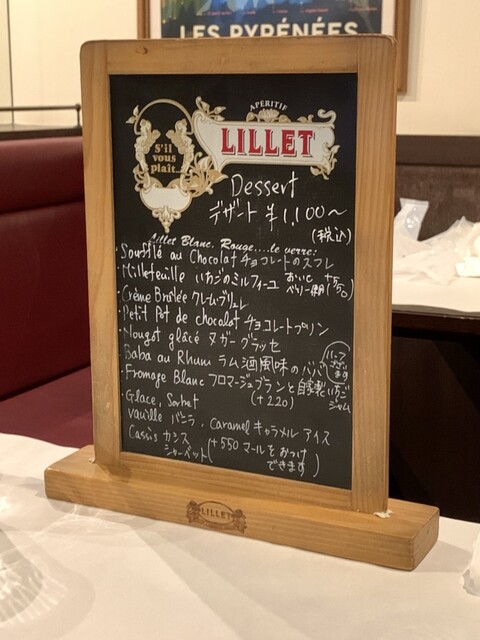 LES PYRÉNÉES
APÉRITIF
LILLET
S'il
vous
plaît...
Dessert
デザート ¥1,100〜
(税込)
Lillet Blanc, Rouge....le verre:
・Soufflé au Chocolat チョコレートのスフレ
・Millefeuille いちごのミルフィーユ
(+550)
・Crème Brûlée クレームブリュレ
・Petit Pot de chocolat チョコレートプリン
・Nougat glacé ヌガーグラッセ
・Baba au Rhum ラム酒風味のババ
・Fromage Blanc フロマージュブランと自家製いちごジャム
(+220)
・Glace, Sorbet
vanille バニラ, Caramel キャラメル アイス
Cassis カシス
シャーベット
(+550 マールをおつけ
できます)
LILLET